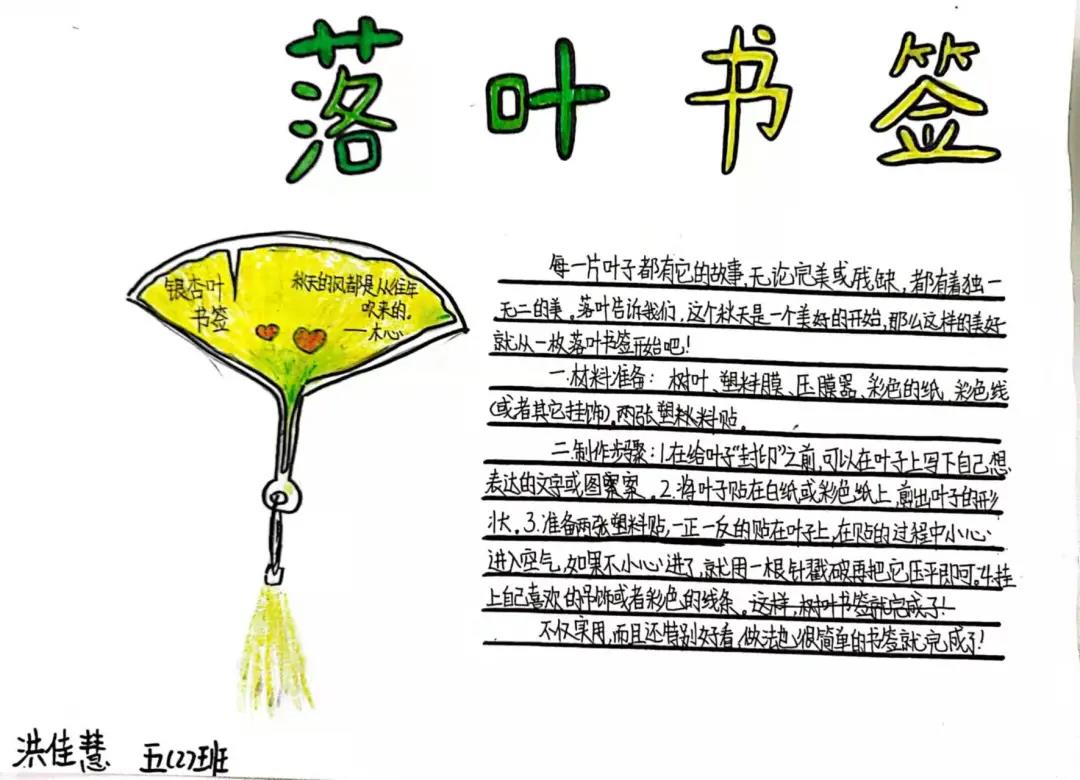 落叶书签
银杏叶
书签
秋天的风都是从往年
吹来的。
——木心
每一片叶子都有它的故事,无论完美或残缺,都有着独一
无二的美。落叶告诉我们,这个秋天是一个美好的开始,那么这样的美好
就从一枚落叶书签开始吧!
一.材料准备:树叶、塑料膜、压膜器、彩色的纸、彩色线
(或者其它挂饰)。两张塑料贴。
二.制作步骤:1.在给叶子“封印”之前,可以在叶子上写下自己想
表达的文字或图案。2.将叶子贴在白纸或彩色纸上,剪出叶子的形
状。3.准备两张塑料贴,一正一反的贴在叶子上,在贴的过程中小心
进入空气,如果不小心进了,就用一根针戳破再把它压平即可。4.挂
上自己喜欢的吊饰或者彩色的线条。这样,树叶书签就完成了!
不仅实用,而且还特别好看,做法也很简单的书签就完成了!
洪佳慧 五(2)班